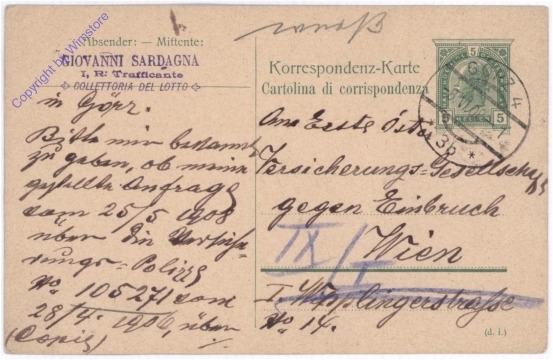 Copyright by Winstore
Absender: — Mittente:
GIOVANNI SARDAGNA
I. R. Trafficante
COLLETTORIA DEL LOTTO
in Görz.
Bitte mir bekannt
zu geben, ob meine
gestellte Anfrage
vom 25/5 1908
über die Versiche-
rungs-Polizze
No 105271 vom
28/4. 1906, über
(Copie)
Korrespondenz-Karte
Cartolina di corrispondenza
5
5
5
An Erste Öster
Versicherungs-Gesellschaft
gegen Einbruch
Wien
IX/1
I. Wipplingerstraße
No 14.
(d. i.)